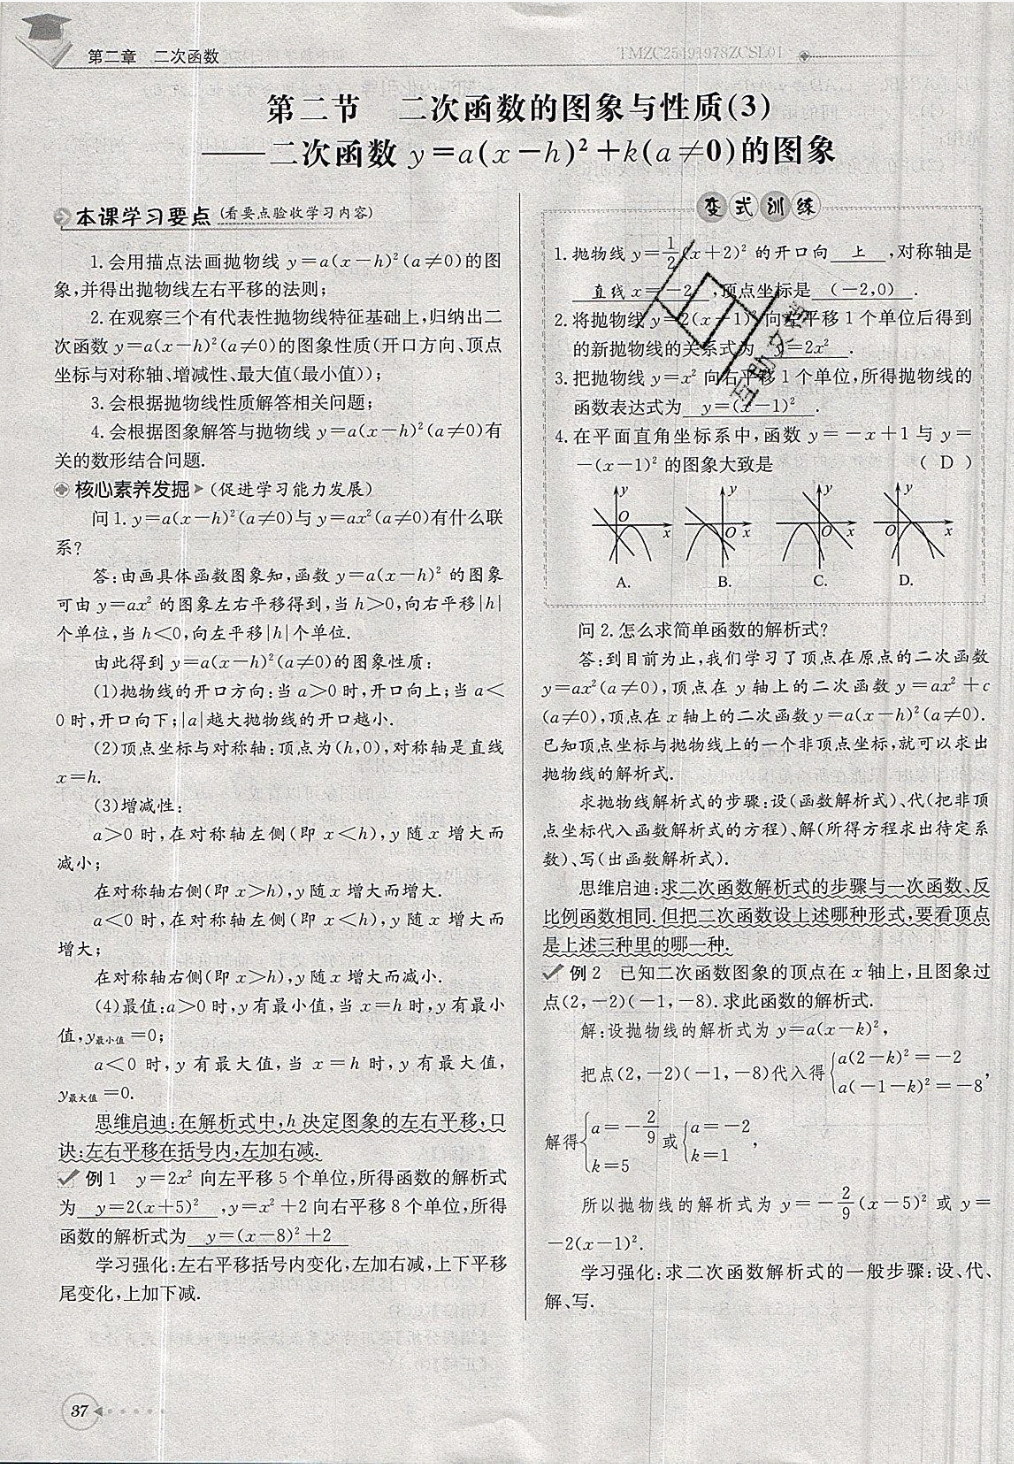 第二章　二次函数
TMZC25491978ZCSL01
第二节　二次函数的图象与性质(3)
——二次函数 y=a(x-h)²+k(a≠0)的图象
本课学习要点(看要点验收学习内容)
1.会用描点法画抛物线 y=a(x-h)²(a≠0)的图
象,并得出抛物线左右平移的法则;
2.在观察三个有代表性抛物线特征基础上,归纳出二
次函数 y=a(x-h)²(a≠0)的图象性质(开口方向、顶点
坐标与对称轴、增减性、最大值(最小值));
3.会根据抛物线性质解答相关问题;
4.会根据图象解答与抛物线 y=a(x-h)²(a≠0)有
关的数形结合问题.
核心素养发掘(促进学习能力发展)
问1.y=a(x-h)²(a≠0)与y=ax²(a≠0)有什么联
系?
答:由画具体函数图象知,函数 y=a(x-h)² 的图象
可由 y=ax² 的图象左右平移得到,当 h>0,向右平移|h|
个单位,当 h<0,向左平移|h|个单位.
由此得到 y=a(x-h)²(a≠0)的图象性质:
(1)抛物线的开口方向:当 a>0 时,开口向上;当 a<
0 时,开口向下;|a|越大抛物线的开口越小.
(2)顶点坐标与对称轴:顶点为(h,0),对称轴是直线
x=h.
(3)增减性:
a>0 时,在对称轴左侧(即 x<h),y 随 x 增大而
减小;
在对称轴右侧(即 x>h),y 随 x 增大而增大.
a<0 时,在对称轴左侧(即 x<h),y 随 x 增大而
增大;
在对称轴右侧(即 x>h),y 随 x 增大而减小.
(4)最值:a>0 时,y有最小值,当 x=h 时,y有最小
值,y最小值=0;
a<0 时,y 有最大值,当 x=h 时,y 有最大值,
y最大值=0.
思维启迪:在解析式中,h 决定图象的左右平移,口
诀:左右平移在括号内,左加右减.
例1　y=2x² 向左平移 5 个单位,所得函数的解析式
为 y=2(x+5)² ,y=x²+2 向右平移 8 个单位,所得
函数的解析式为 y=(x-8)²+2
学习强化:左右平移括号内变化,左加右减,上下平移
尾变化,上加下减.
37
变式训练
1.抛物线 y=1/2(x+2)² 的开口向 上 ,对称轴是
直线 x=-2 ,顶点坐标是 (-2,0) .
2.将抛物线 y=2(x-1)² 向左平移 1 个单位后得到
的新抛物线的关系式为 y=2x² .
3.把抛物线 y=x² 向右平移 1 个单位,所得抛物线的
函数表达式为 y=(x-1)² .
4.在平面直角坐标系中,函数 y=-x+1 与 y=
-(x-1)² 的图象大致是 ( D )
y y y y
O x O x O x O x
A. B. C. D.
问 2.怎么求简单函数的解析式?
答:到目前为止,我们学习了顶点在原点的二次函数
y=ax²(a≠0),顶点在 y 轴上的二次函数 y=ax²+c
(a≠0),顶点在 x 轴上的二次函数 y=a(x-h)²(a≠0).
已知顶点坐标与抛物线上的一个非顶点坐标,就可以求出
抛物线的解析式.
求抛物线解析式的步骤:设(函数解析式)、代(把非顶
点坐标代入函数解析式的方程)、解(所得方程求出待定系
数)、写(出函数解析式).
思维启迪:求二次函数解析式的步骤与一次函数、反
比例函数相同.但把二次函数设上述哪种形式,要看顶点
是上述三种里的哪一种.
例 2　已知二次函数图象的顶点在 x 轴上,且图象过
点(2,-2)(-1,-8).求此函数的解析式.
解:设抛物线的解析式为 y=a(x-k)²,
把点(2,-2)(-1,-8)代入得{a(2-k)²=-2 a(-1-k)²=-8,
解得{a=-2/9 k=5 或{a=-2 k=1,
所以抛物线的解析式为 y=-2/9(x-5)² 或 y=
-2(x-1)².
学习强化:求二次函数解析式的一般步骤:设、代、
解、写.